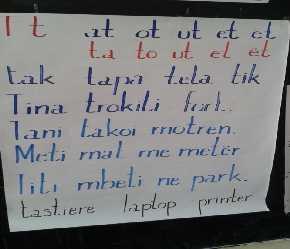 I t at ot ut et ët
ta to ut el ël
tak tapa tela tik
Tina trokiti fort.
Tani takoi motren.
Meti mat me metër
Titi mbeti ne park.
tastiere laptop printer